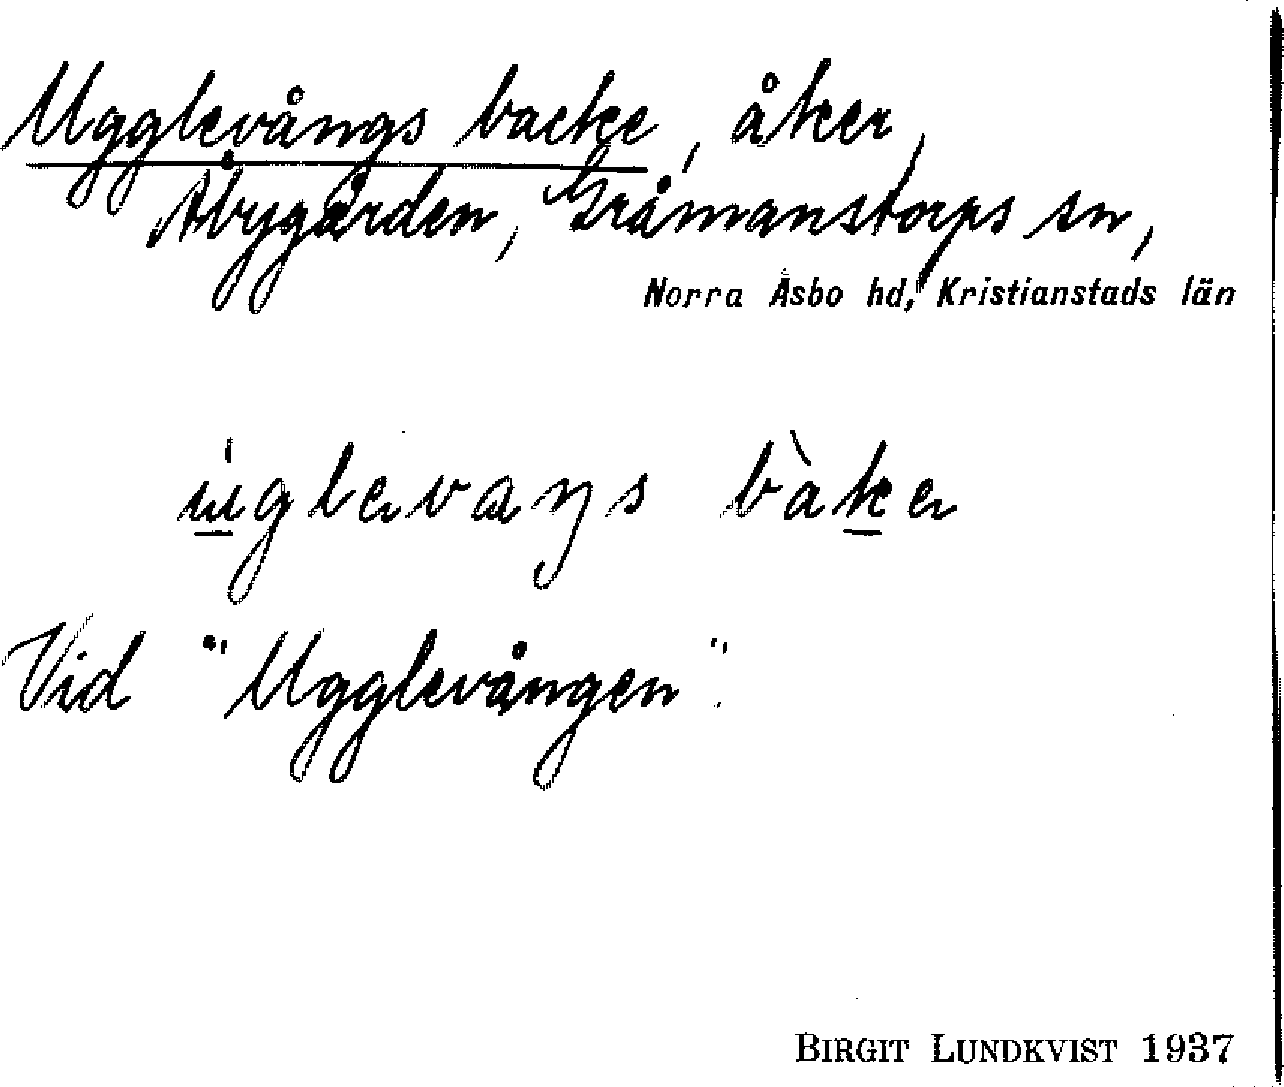 Ugglevångs backe, åker,
Åbygården, Gråmanstorps sn,
Norra Åsbo hd, Kristianstads län
úglevaŋs bàke
Vid "Ugglevången".
BIRGIT LUNDKVIST 1937